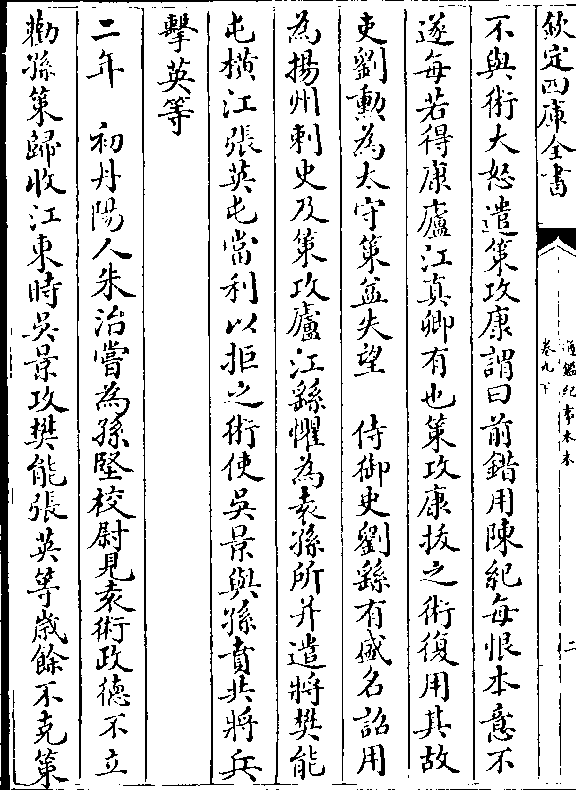 欽定四庫全書
通鑑紀事本末
卷九下
二
不與術大怒遣策攻康謂曰前錯用陳紀每恨本意不
遂今若得康廬江真卿有也策攻康拔之術復用其故
吏劉勳為太守策益失望　侍御史劉繇有盛名詔用
為揚州刺史及策攻廬江繇懼為袁孫所并遣將樊能
屯橫江張英屯當利以拒之術使吳景與孫賁共將兵
擊英等
二年　初丹陽人朱治嘗為孫堅校尉見袁術政德不立
勸孫策歸收江東時吳景攻樊能張英等歲餘不克策